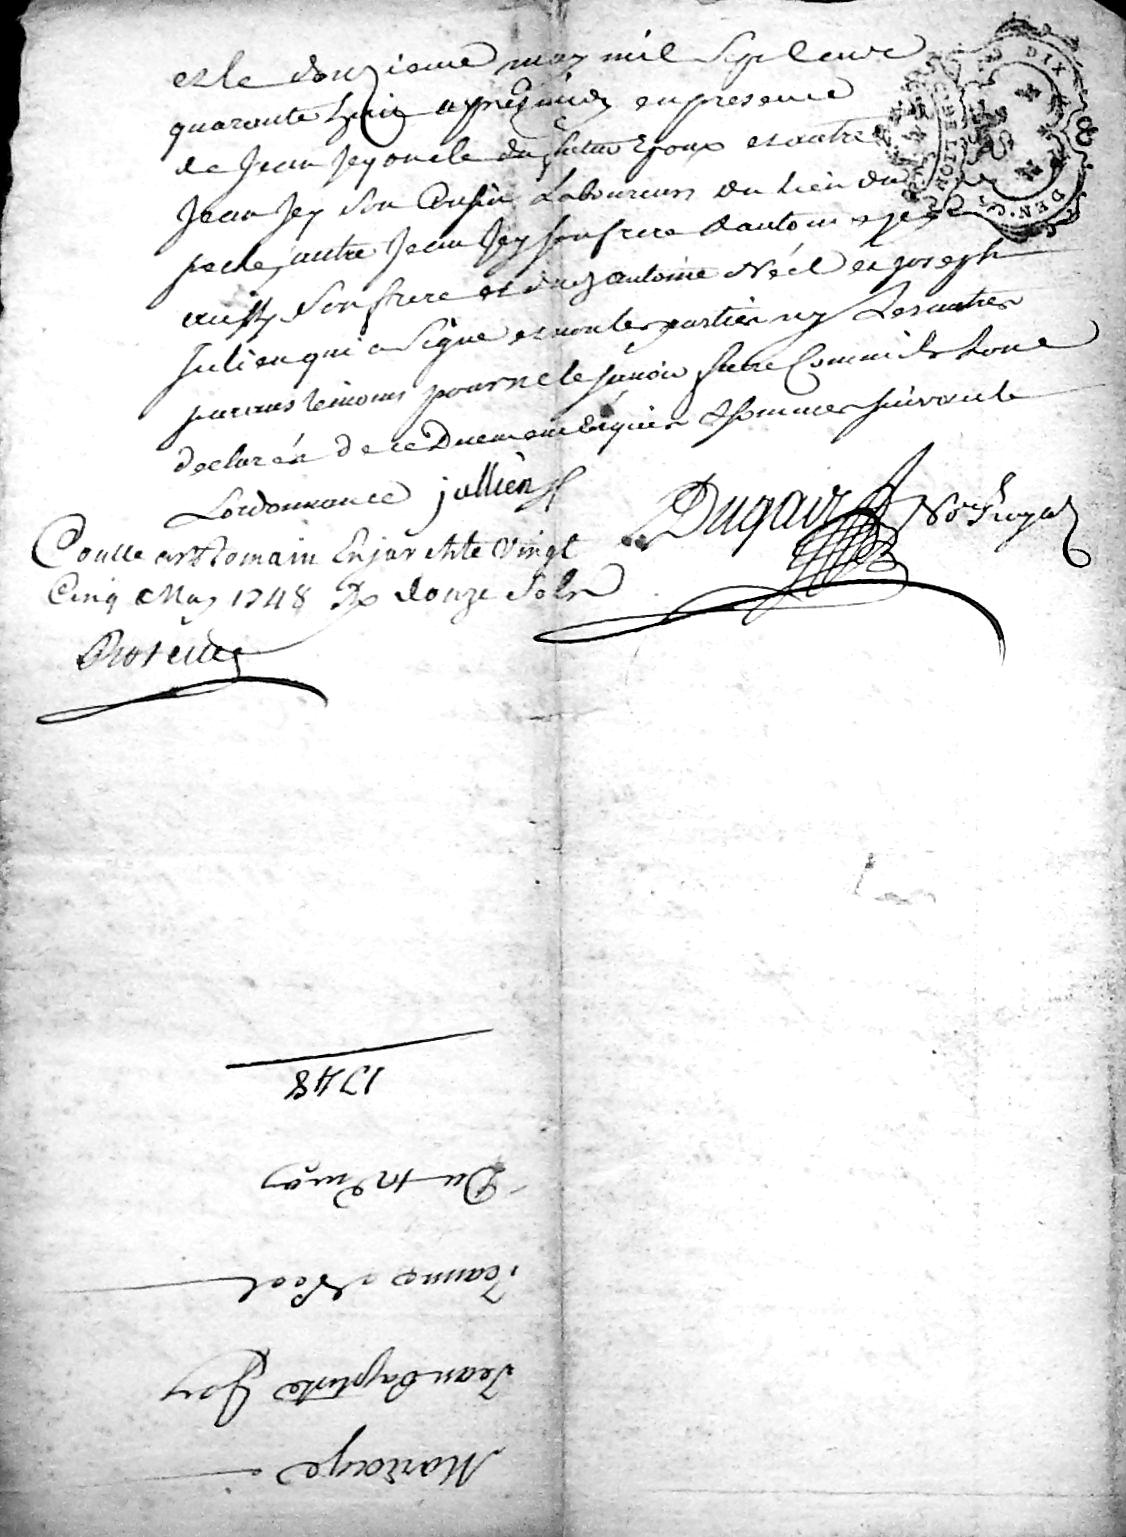 et le douzieme may mil sept cent
quarante huit apres midy en presence
de Jean Jey oncle du futur Epoux et autre
Jean Jey Son Cousin Laboureurs du lieu du
autre Jean Jey son frere & antoine Jey
aussy Son frere et antoine Néel et joseph
Julien qui a Signé et non les parties ny Les autres
temoins pour ne le sçavoir faire Comme ils dont
declaré de ce Duement Enquis & sommes suivant
Lordonnance jullien
Dugair No Royal
DIX
DEN.
MOLLERAT
Vingt
Cinq May 1748 Rx douze Sols
1748
Du 12 may
Jeanne Néel
Jean baptiste Jey
Mariage